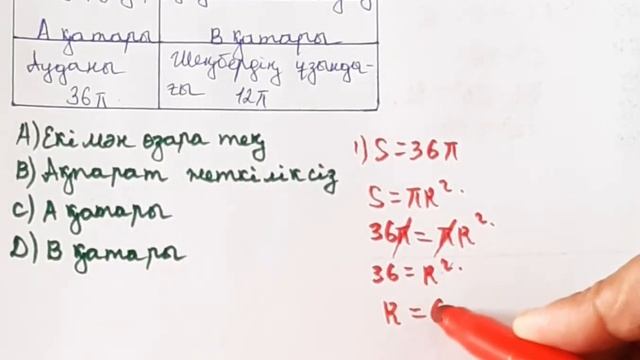 А қатары
В қатары
Ауданы
36π
Шеңбердің ұзынды-
ғы 12π
А) Екі мән өзара тең
В) Ақпарат жеткіліксіз
С) А қатары
D) В қатары
1) S = 36π
S = πR².
36π = πR².
36 = R².
R =